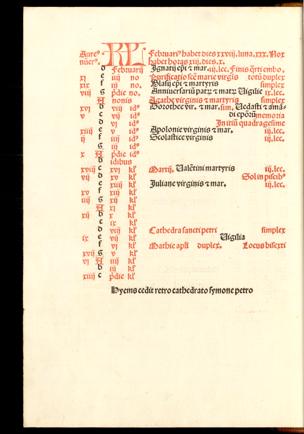 Aure⁹ KL Februari⁹ habet dies xxviij. luna. xxx. Nox
nūer⁹. habet horas xiiij. dies. x.
d Februarij Ignatij epi ⁊ mar. iij. lec. Finis q̃rti embo.
xj e iiij no. Purificatio scē marie virgīs totū duplex
xix f iij no. Blasij epi ⁊ martyris simplex
viij g p̄die no. Anniuersariū patȝ ⁊ matȝ Uigilie iij. lec.
A nonis Agathe virginis ⁊ martyris simplex
xvj b viij id⁹ Dorothee vir. ⁊ mar. sim. Uedasti ⁊ amā
v c vij id⁹ di epōrū memoria
d vj id⁹ Initiū quadragesime
xiij e v id⁹ Apolonie virginis ⁊ mar. iij. lec.
ij f iiij id⁹ Scolastice virginis iij. lec.
g iij id⁹
x A p̄die id⁹
b idibus
xviij c xvj kl̄ Martij. Ualētini martyris iij. lec.
vij d xv kl̄ Sol in piscib⁹
e xiiij kl̄ Juliane virginis ⁊ mar. iij. lec.
xv f xiij kl̄
iiij g xij kl̄
A xj kl̄
xij b x kl̄
j c ix kl̄
d viij kl̄ Cathedra sancti petri simplex
ix e vij kl̄ Uigilia
f vj kl̄ Mathie apli duplex. Locus bisexti
xvij g v kl̄
vj A iiij kl̄
b iij kl̄
xiiij c p̄die kl̄
Hyems cedit retro cathedrato symone petro